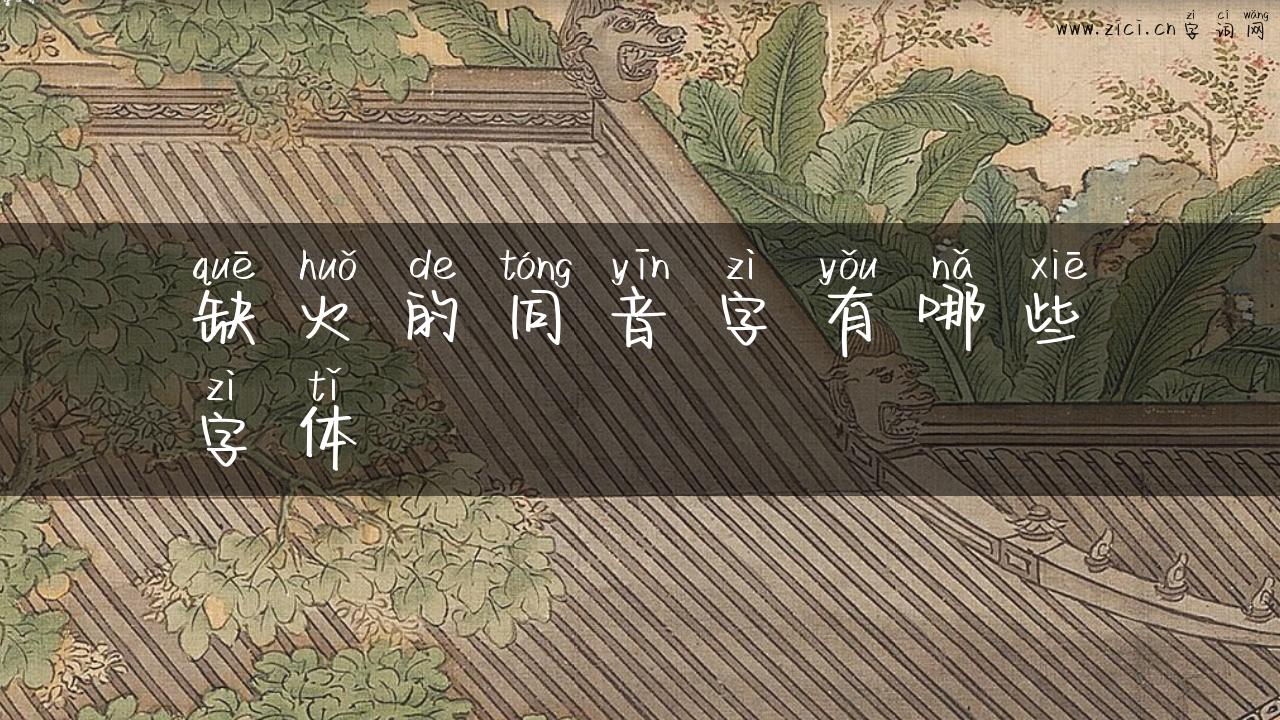 zì cí wǎng
www.zici.cn 字词网
quē huǒ de tóng yīn zì yǒu nǎ xiē
缺火的同音字有哪些
zì tǐ
字体